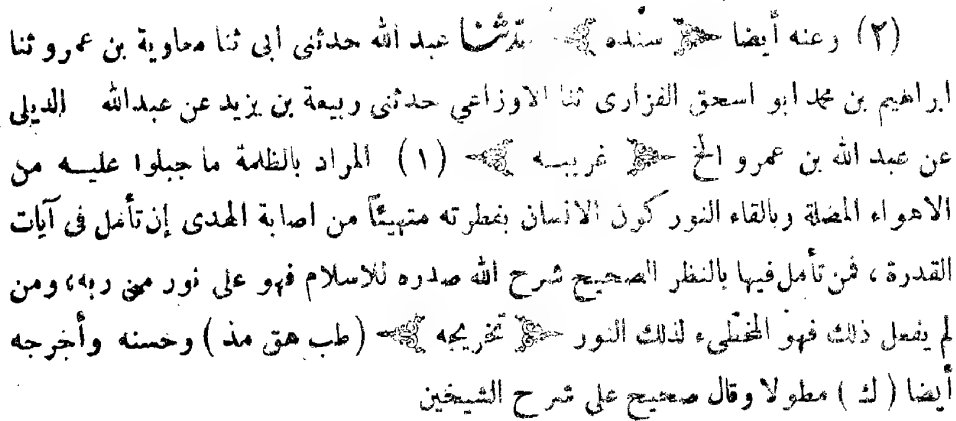 (٢) وعنه أيضا ﴿ سنده ﴾ حدثنا عبد الله حدثنى ابى ثنا معاوية بن عمرو ثنا
ابراهيم بن محمد ابو اسحق الفزارى ثنا الاوزاعي حدثنى ربيعة بن يزيد عن عبدالله الديلى
عن عبد الله بن عمرو الخ ﴿ غريبـه ﴾ (١) المراد بالظلمة ما جبلوا عليـه من
الاهواء المضلة وبالقاء النور كون الانسان بفطرته متهيئاً من اصابة الهدى إن تأمل فى آيات
القدرة ، فمن تأمل فيها بالنظر الصحيح شرح الله صدره للاسلام فهو على نور من ربه، ومن
لم يفعل ذلك فهو المخطىء لذلك النور ﴿ تخريجه ﴾ (طب هق مذ) وحسنه وأخرجه
أيضا (ك) مطولا وقال صحيح على شرح الشيخين